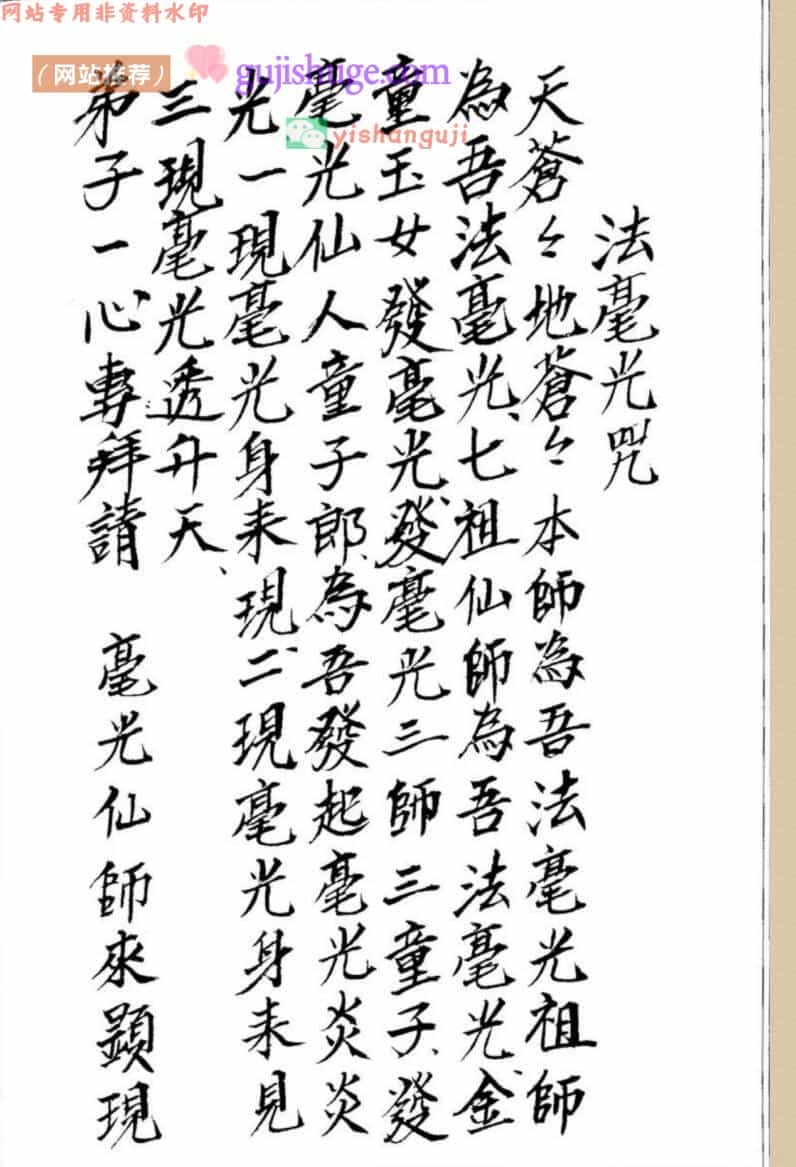 网站专用非资料水印
（网站推荐）
gujishuge.com
yishanguji
法毫光咒
天蒼々地蒼々本師為吾法毫光祖師
為吾法毫光、七祖仙師為吾法毫光、金
童玉女發毫光、發毫光三師三童子、發
毫光仙人童子郎、為吾發起毫光炎炎
光一現毫光身来現、二現毫光身来見
三現毫光透升天、
弟子一心專拜請　毫光仙師來顕現